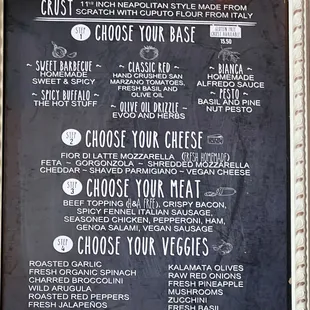 CRUST 11" INCH NEAPOLITAN STYLE MADE FROM
SCRATCH WITH CUPUTO FLOUR FROM ITALY
GLUTEN FREE
CRUST AVAILABLE
15.50
STEP 1 CHOOSE YOUR BASE
~ SWEET BARBECUE ~
HOMEMADE
SWEET & SPICY
~ SPICY BUFFALO ~
THE HOT STUFF
~ CLASSIC RED ~
HAND CRUSHED SAN
MARZANO TOMATOES,
FRESH BASIL AND
OLIVE OIL
~ OLIVE OIL DRIZZLE ~
EVOO AND HERBS
~ BIANCA ~
HOMEMADE
ALFREDO SAUCE
~ PESTO ~
BASIL AND PINE
NUT PESTO
STEP 2 CHOOSE YOUR CHEESE
FIOR DI LATTE MOZZARELLA (FRESH HOMEMADE)
FETA ~ GORGONZOLA ~ SHREDDED MOZZARELLA
CHEDDAR ~ SHAVED PARMIGIANO ~ VEGAN CHEESE
STEP 3 CHOOSE YOUR MEAT
BEEF TOPPING (H&A FREE), CRISPY BACON,
SPICY FENNEL ITALIAN SAUSAGE,
SEASONED CHICKEN, PEPPERONI, HAM,
GENOA SALAMI, VEGAN SAUSAGE
STEP 4 CHOOSE YOUR VEGGIES
ROASTED GARLIC
FRESH ORGANIC SPINACH
CHARRED BROCCOLINI
WILD ARUGULA
ROASTED RED PEPPERS
FRESH JALAPEÑOS
KALAMATA OLIVES
RAW RED ONIONS
FRESH PINEAPPLE
MUSHROOMS
ZUCCHINI
FRESH BASIL